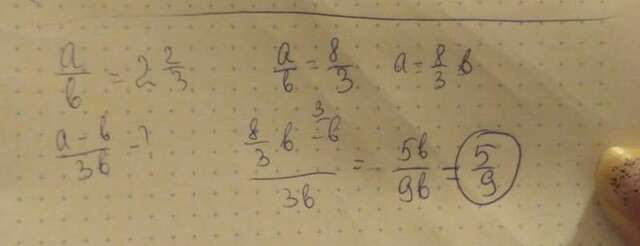 a/b = 2 2/3   a/b = 8/3   a = 8/3 b
(a - b)/3b - ?   (8/3 b - b^3)/3b = 5b/9b = 5/9